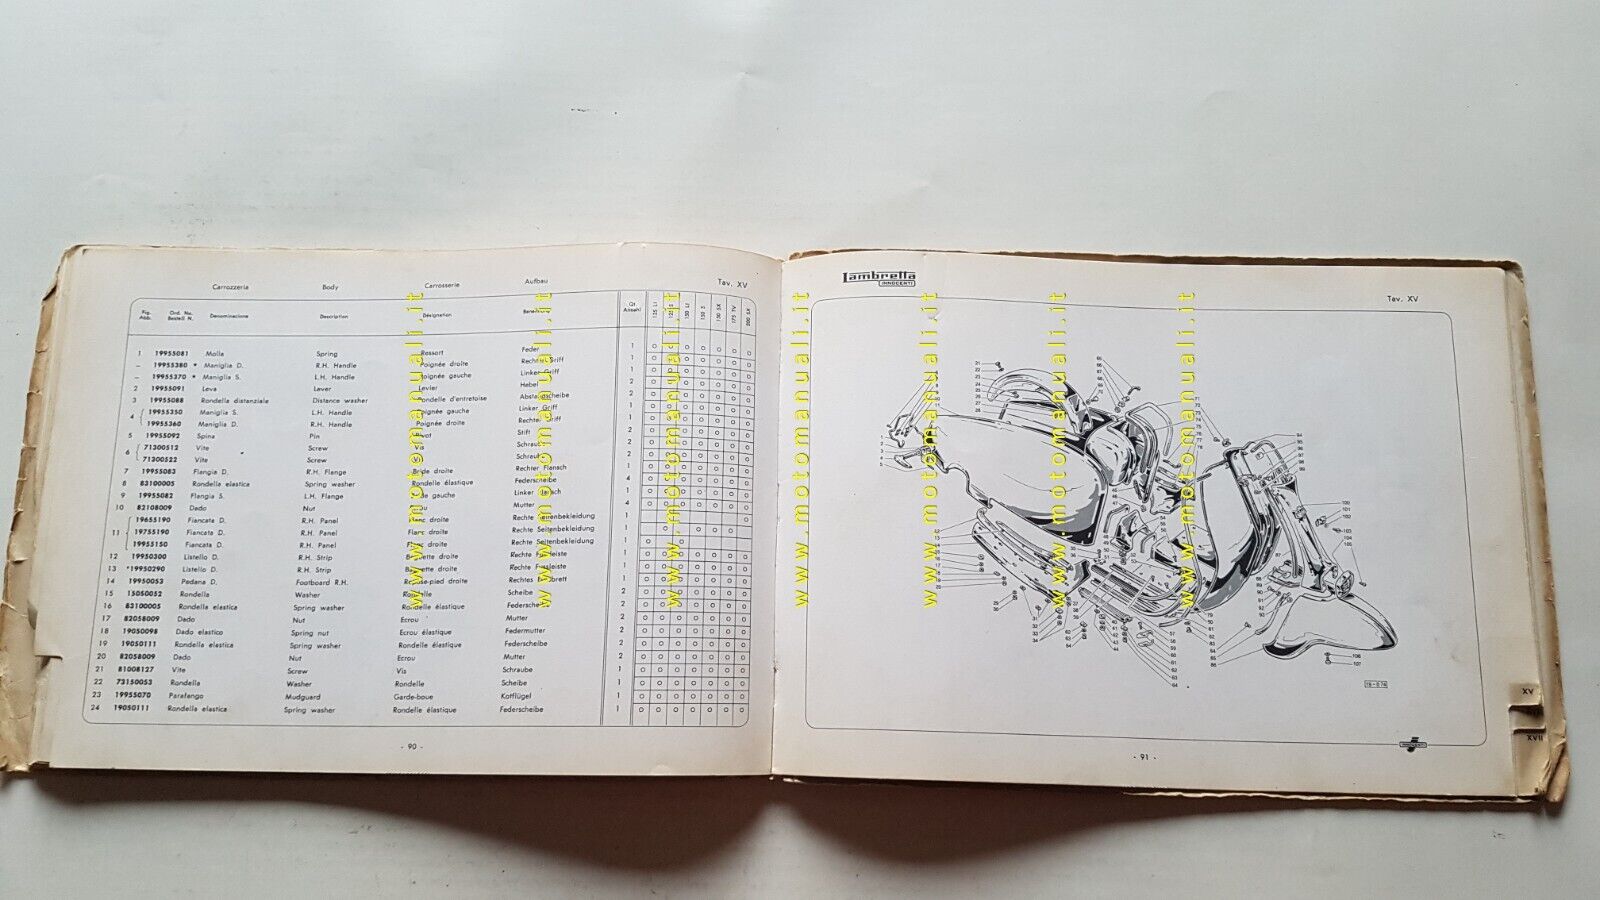 Carrozzeria Body Carrosserie Aufbau Tav. XV
Fig. Abb. Ord. No. Bestell N. Denominazione Description Désignation Qt Anzahl 125 LI 125 S 150 LI 150 S 150 SX 175 TV 200 SX
1 19955081 Molla Spring Ressort Feder 1
– 19955380 * Maniglia D. R.H. Handle Poignée droite Rechter Griff 1
– 19955370 * Maniglia S. L.H. Handle Poignée gauche Linker Griff 1
2 19955091 Leva Lever Levier Hebel 2
3 19955088 Rondella distanziale Distance washer Rondelle d'entretoise Abstandscheibe 2
4 19955350 Maniglia S. L.H. Handle Poignée gauche Linker Griff 1
19955360 Maniglia D. R.H. Handle Poignée droite Rechter Griff 1
5 19955092 Spina Pin Pivot Stift 2
6 71300512 Vite Screw Vis Schraube 2
71300522 Vite Screw Vis Schraube 2
7 19955083 Flangia D. R.H. Flange Bride droite Rechter Flansch 1
8 83100005 Rondella elastica Spring washer Rondelle élastique Federscheibe 4
9 19955082 Flangia S. L.H. Flange Bride gauche Linker Flansch 1
10 82108009 Dado Nut Ecrou Mutter 4
11 19655190 Fiancata D. R.H. Panel Flanc droite Rechte Seitenbekleidung 1
19755190 Fiancata D. R.H. Panel Flanc droite Rechte Seitenbekleidung 1
19955150 Fiancata D. R.H. Panel Flanc droite Rechte Seitenbekleidung 1
12 19950300 Listello D. R.H. Strip Baguette droite Rechte Fussleiste 1
13 *19950290 Listello D. R.H. Strip Baguette droite Rechte Fussleiste 1
14 19950053 Pedana D. Footboard R.H. Repose-pied droite Rechtes Trittbrett 1
15 15050052 Rondella Washer Rondelle Scheibe 2
16 83100005 Rondella elastica Spring washer Rondelle élastique Federscheibe 2
17 82058009 Dado Nut Ecrou Mutter 2
18 19050098 Dado elastico Spring nut Ecrou élastique Federmutter 2
19 19050111 Rondella elastica Spring washer Rondelle élastique Federscheibe 2
20 82058009 Dado Nut Ecrou Mutter 2
21 81008127 Vite Screw Vis Schraube 1
22 73150053 Rondella Washer Rondelle Scheibe 1
23 19955070 Parafango Mudguard Garde-boue Kotflügel 1
24 19050111 Rondella elastica Spring washer Rondelle élastique Federscheibe 1
- 90 -
www.motomanuali.it
www.motomanuali.it
www.motomanuali.it
www.motomanuali.it
www.motomanuali.it
www.motomanuali.it
www.motomanuali.it
Lambretta
INNOCENTI
Tav. XV
- 91 -
INNOCENTI
XV
XVII